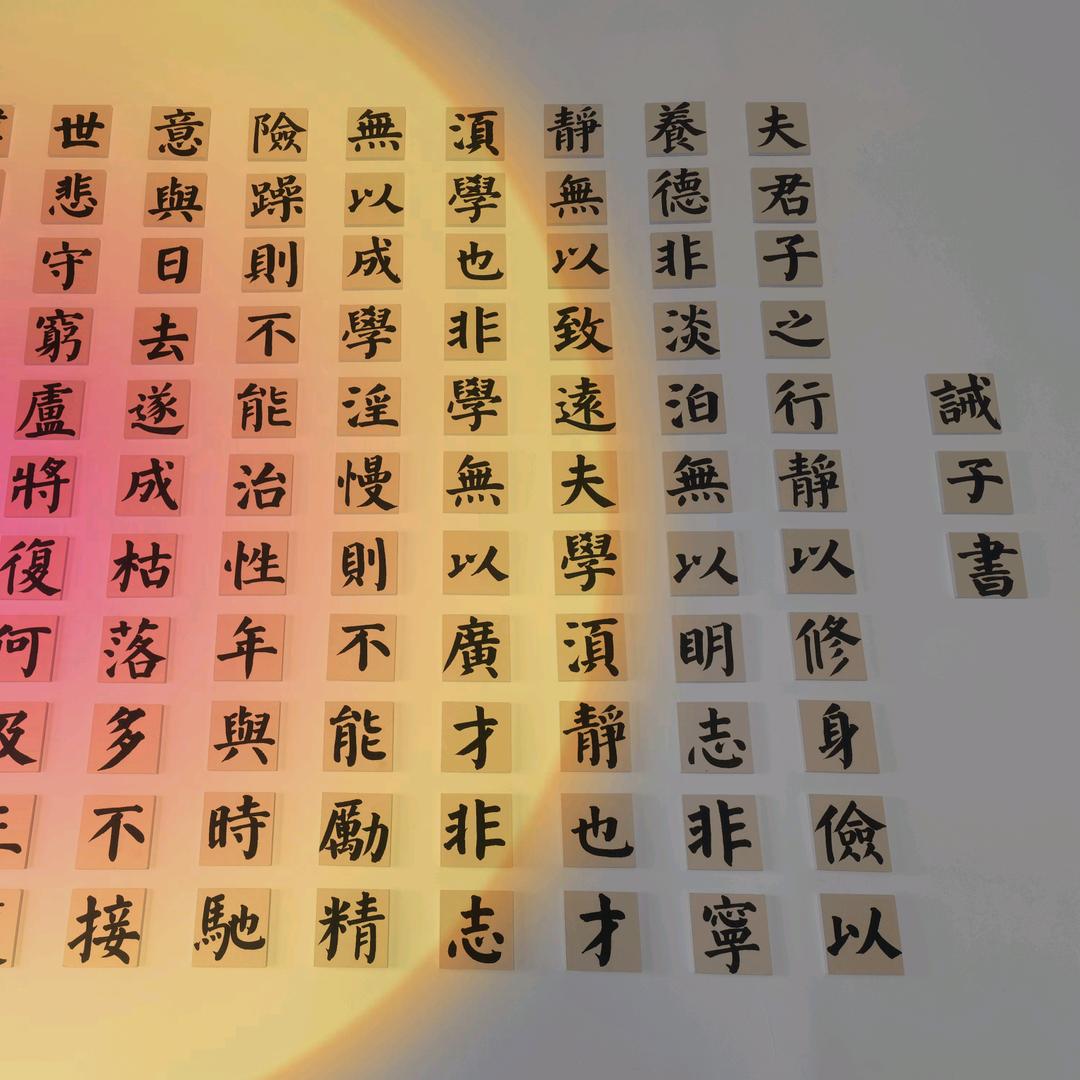 誡子書
夫君子之行靜以修身儉以
養德非淡泊無以明志非寧
靜無以致遠夫學湏靜也才
湏學也非學無以廣才非志
無以成學淫慢則不能勵精
險躁則不能治性年與時馳
意與日去遂成枯落多不接
世悲守窮盧將復何及